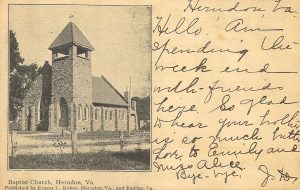 Herndon Va
Hello! Am
spending the
week end
with friends
here. So glad
to hear your
so much
love to Emily and
Miss Alice
Bye-bye.
Baptist Church, Herndon, Va.
Published by Ernest L. Robey, Herndon, Va., and Fairfax, Va.